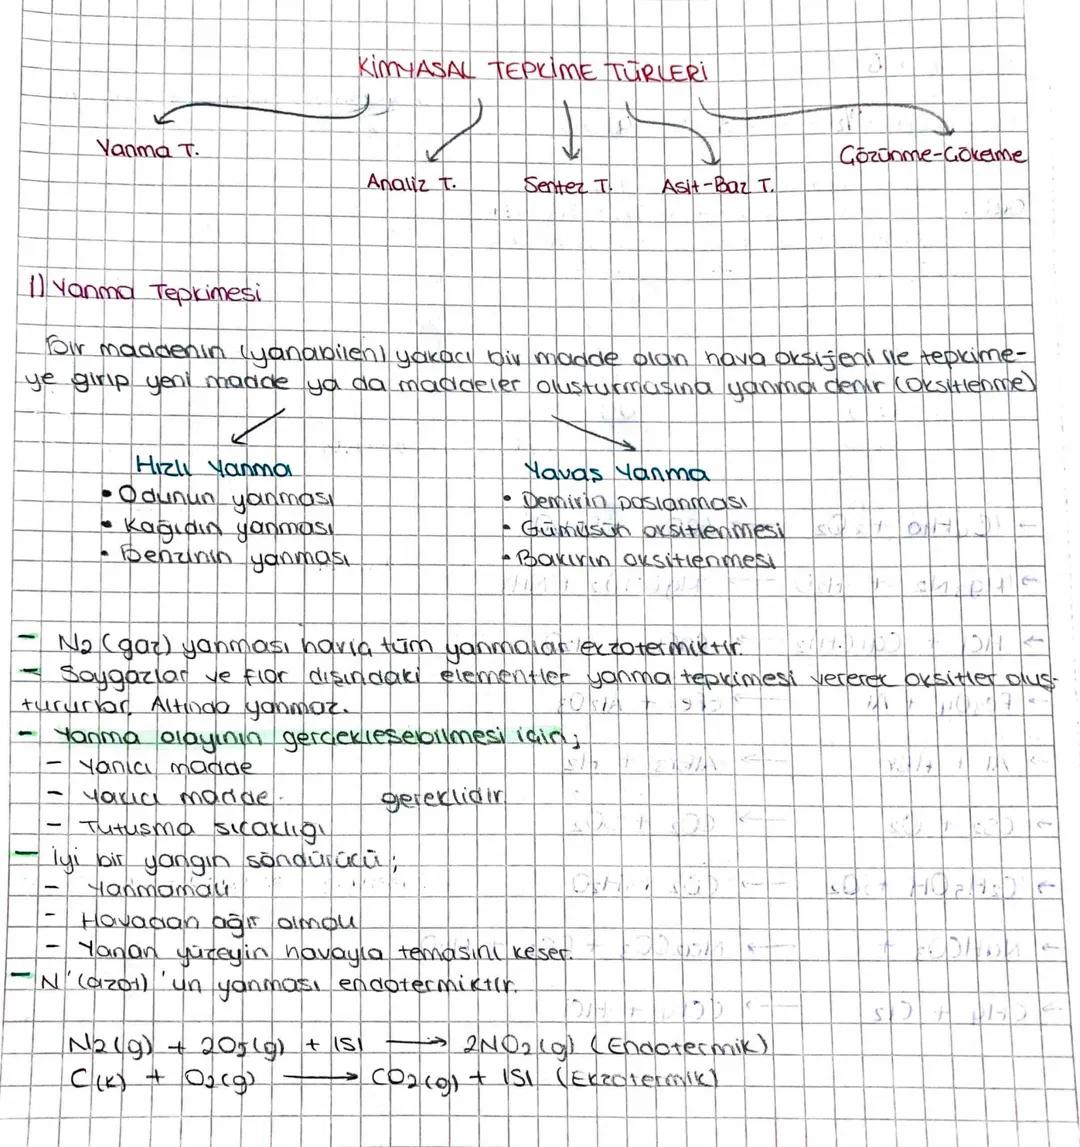 KİMYASAL TEPKİME TÜRLERİ
Yanma T.
Analiz T.
Sentez T.
Asit-Baz T.
Çözünme-Çökelme
1) Yanma Tepkimesi
Bir maddenin (yanabilen) yakıcı bir madde olan hava oksijeni ile tepkime-
ye girip yeni madde ya da maddeler oluşturmasına yanma denir (oksitlenme)
Hızlı Yanma
• Odunun yanması
• Kağıdın yanması
• Benzinin yanması
Yavaş Yanma
• Demirin paslanması
• Gümüşün oksitlenmesi
• Bakırın oksitlenmesi
- N2 (gaz) yanması hariç tüm yanmalar ekzotermiktir.
- Soygazlar ve flor dışındaki elementler yanma tepkimesi vererek oksitler oluş-
tururlar. Altında yanmaz.
- Yanma olayının gerçekleşebilmesi için;
- Yanıcı madde
- Yakıcı madde gereklidir.
- Tutuşma sıcaklığı
- İyi bir yangın söndürücü;
- Yanmamalı
- Havadan ağır olmalı
- Yanan yüzeyin havayla temasını keser.
- N'(azot) 'un yanması endotermiktir.
N2(g) + 2O2(g) + ISI → 2NO2(g) (Endotermik)
C(k) + O2(g) → CO2(g) + ISI (Ekzotermik)